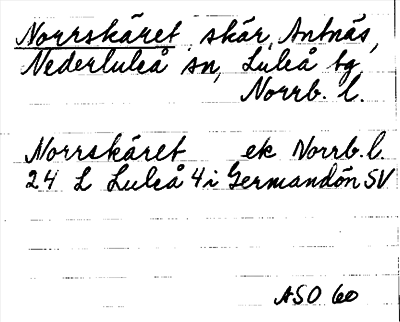 Norrskäret, skär, Antnäs,
Nederluleå sn, Luleå tg
Norrb. l.
Norrskäret ek Norrb. l.
24 L Luleå 4 i Germandön SV
ASO 60